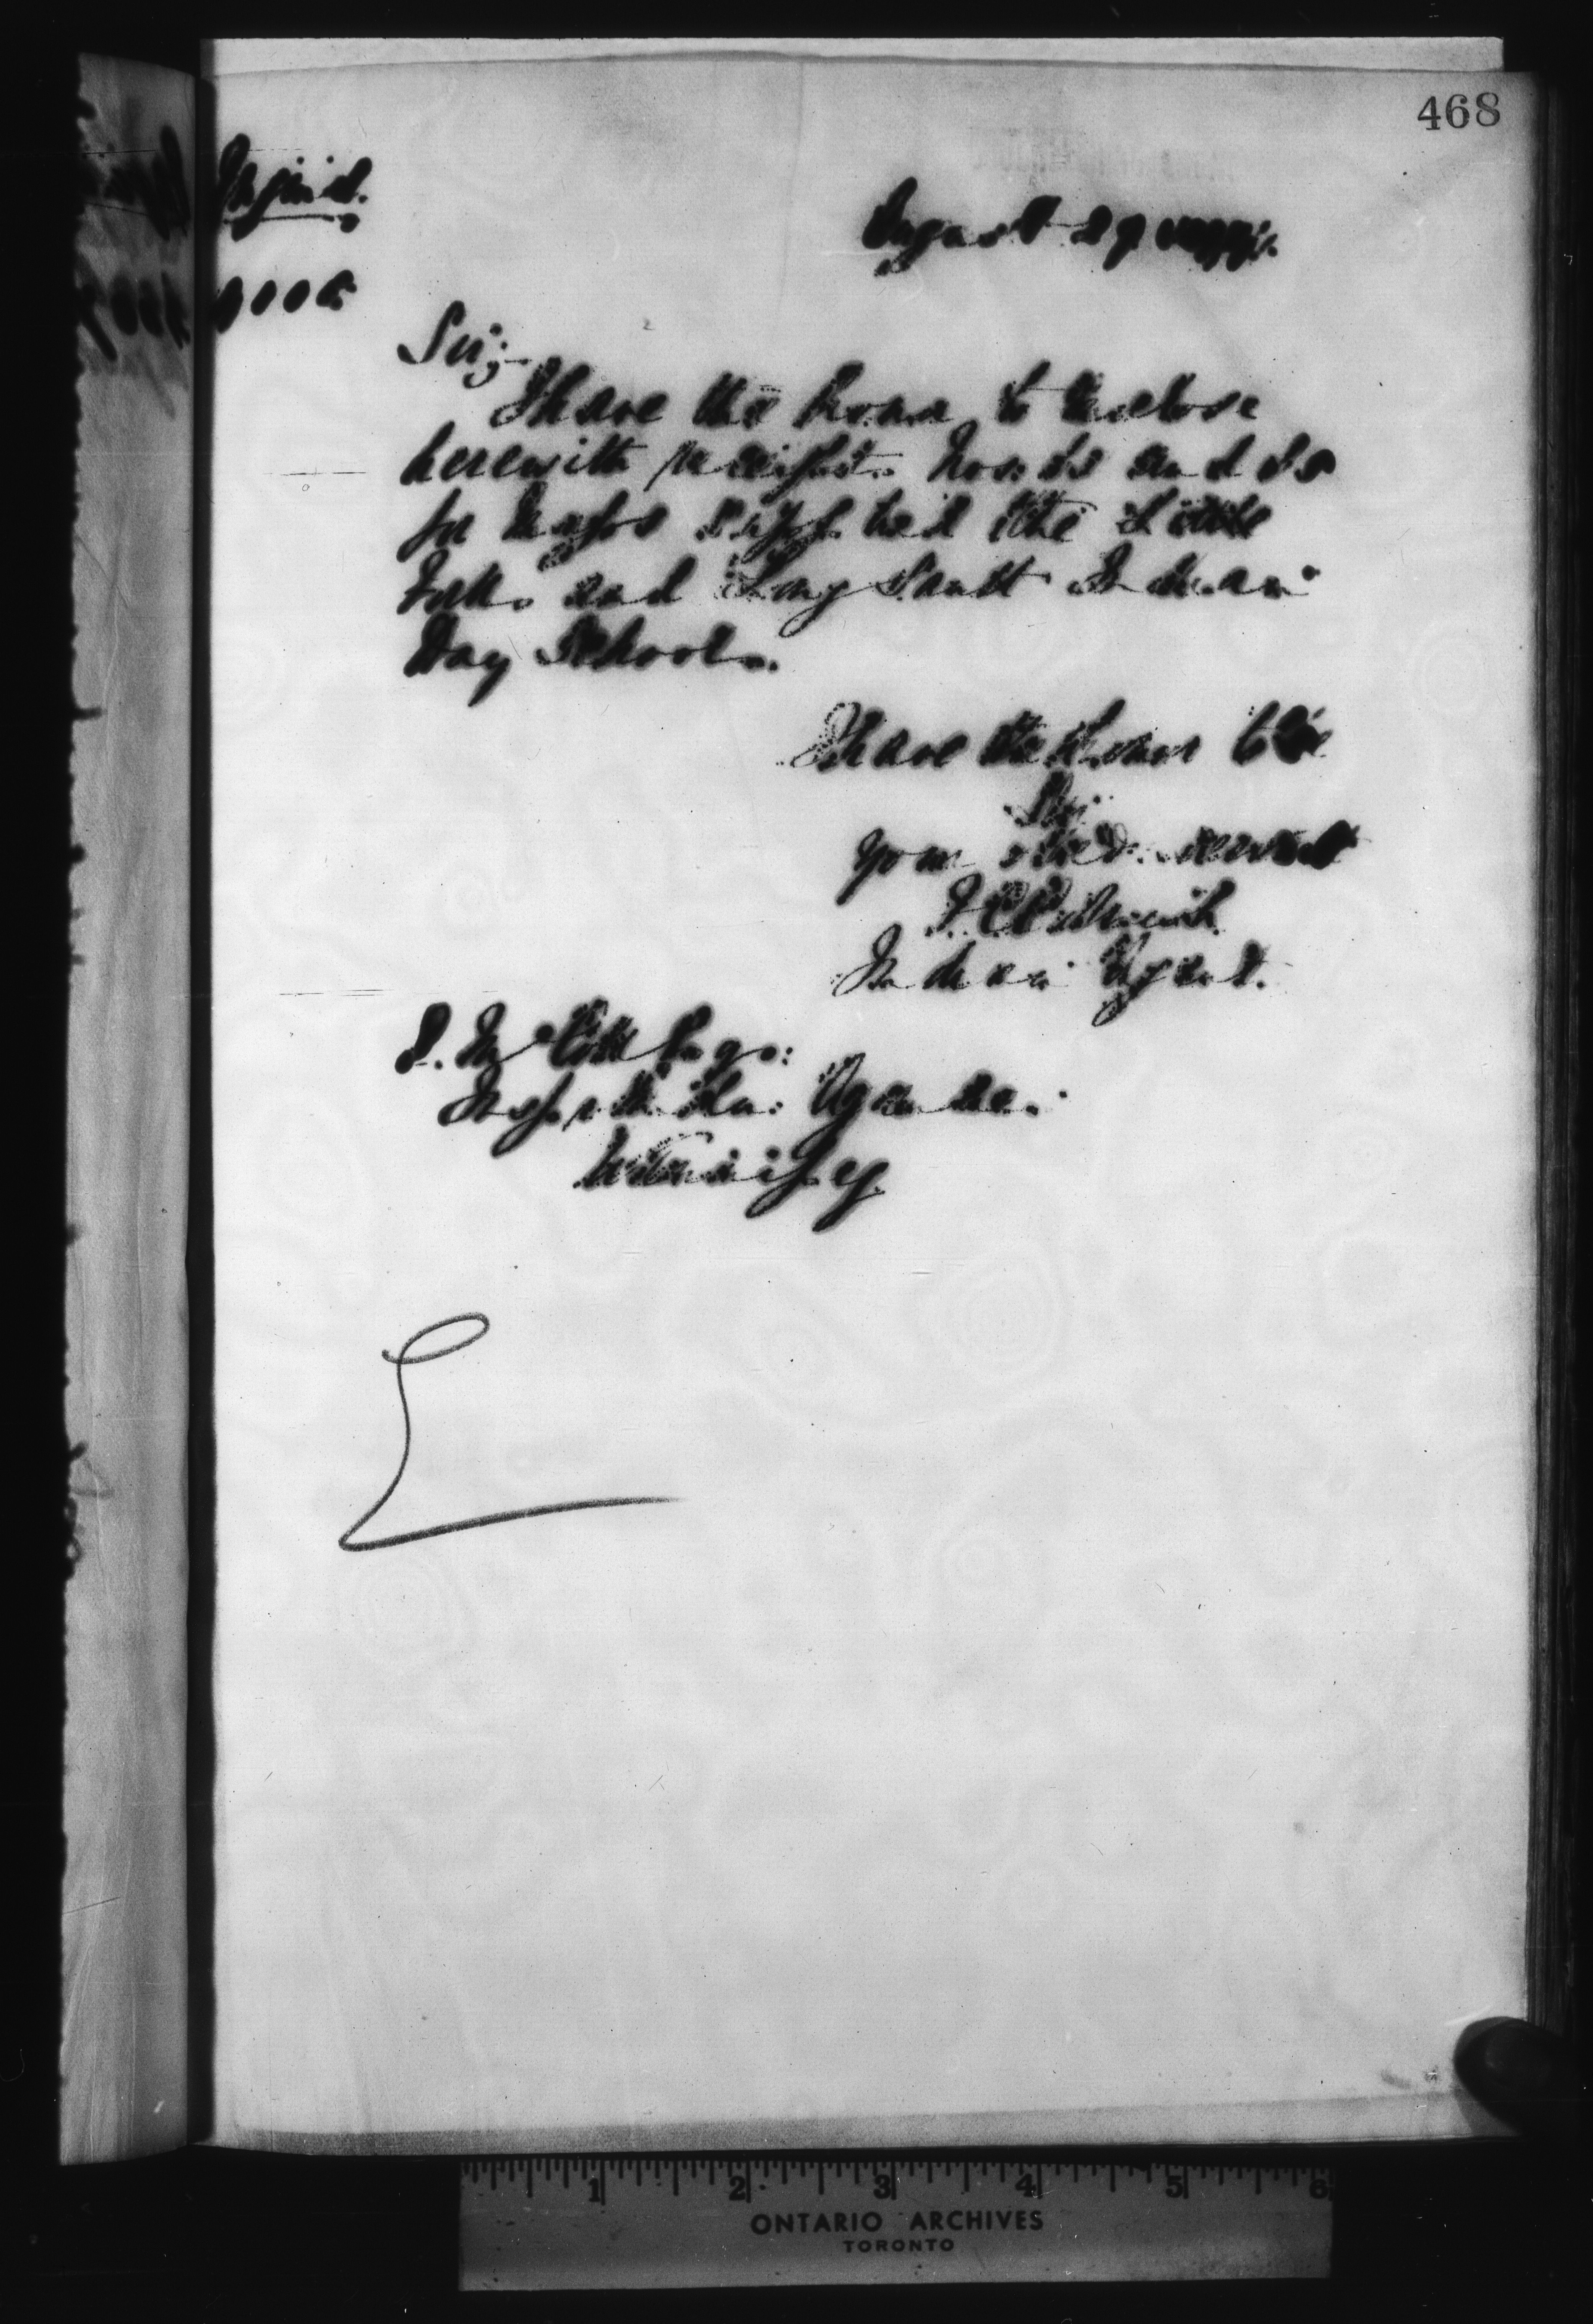 468
August 29
Sir;-
I have the honor to enclose
herewith receipts Nos: and
for supplied the Little
Forks and Long Sault Indian
Day Schools.
I have the honor to be
Sir
your obed. servant
Indian Agent.
E. McColl Esq:
Insp Indian Agencies.
Winnipeg
1 2 3 4 5 6
ONTARIO ARCHIVES
TORONTO